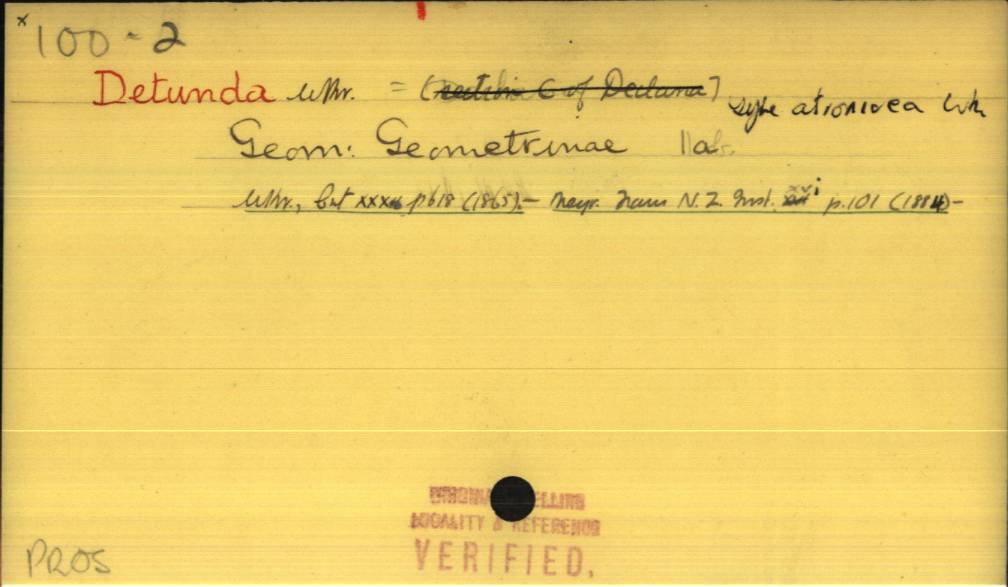 x
100-2
Detunda Wkr. = (section C of Declana)
type atronivea Wk
Geom: Geometrinae
Wkr., Cat xxxv p618 (1865).— Meyr. Trans N.Z. Inst. xvi p.101 (1884)—
ORIGINAL SPELLING
LOCALITY & REFERENCE
VERIFIED.
PROS